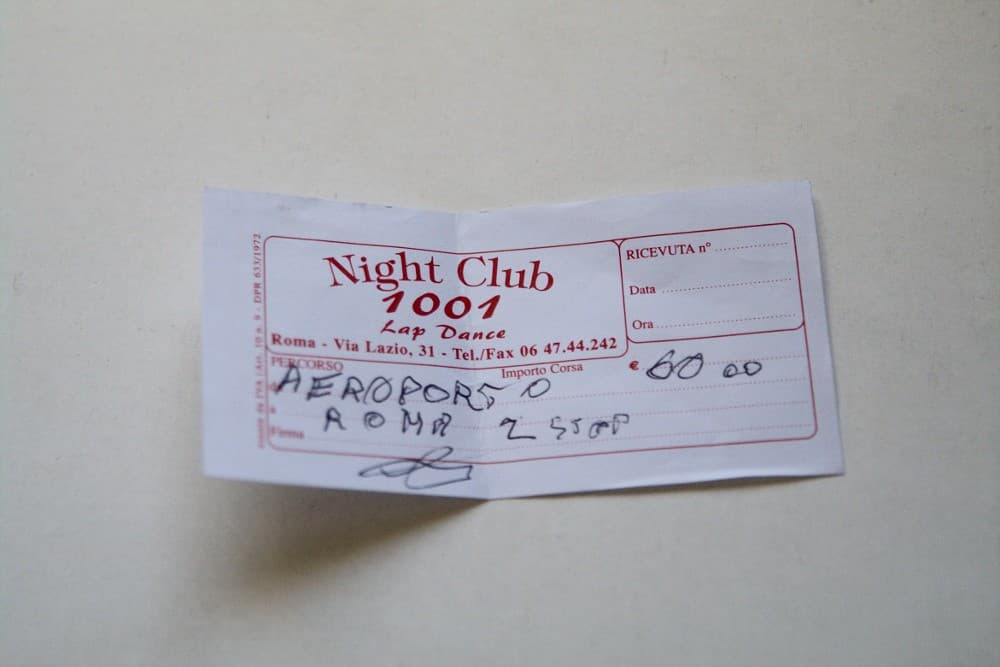 Night Club
1001
Lap Dance
Roma - Via Lazio, 31 - Tel./Fax 06 47.44.242
RICEVUTA n°
Data
Ora
PERCORSO
Importo Corsa
€ 60 00
AEROPORTO
a
ROMA 2 STOP
Firma
IVA (Art. 10 n. 9 - DPR 633/1972